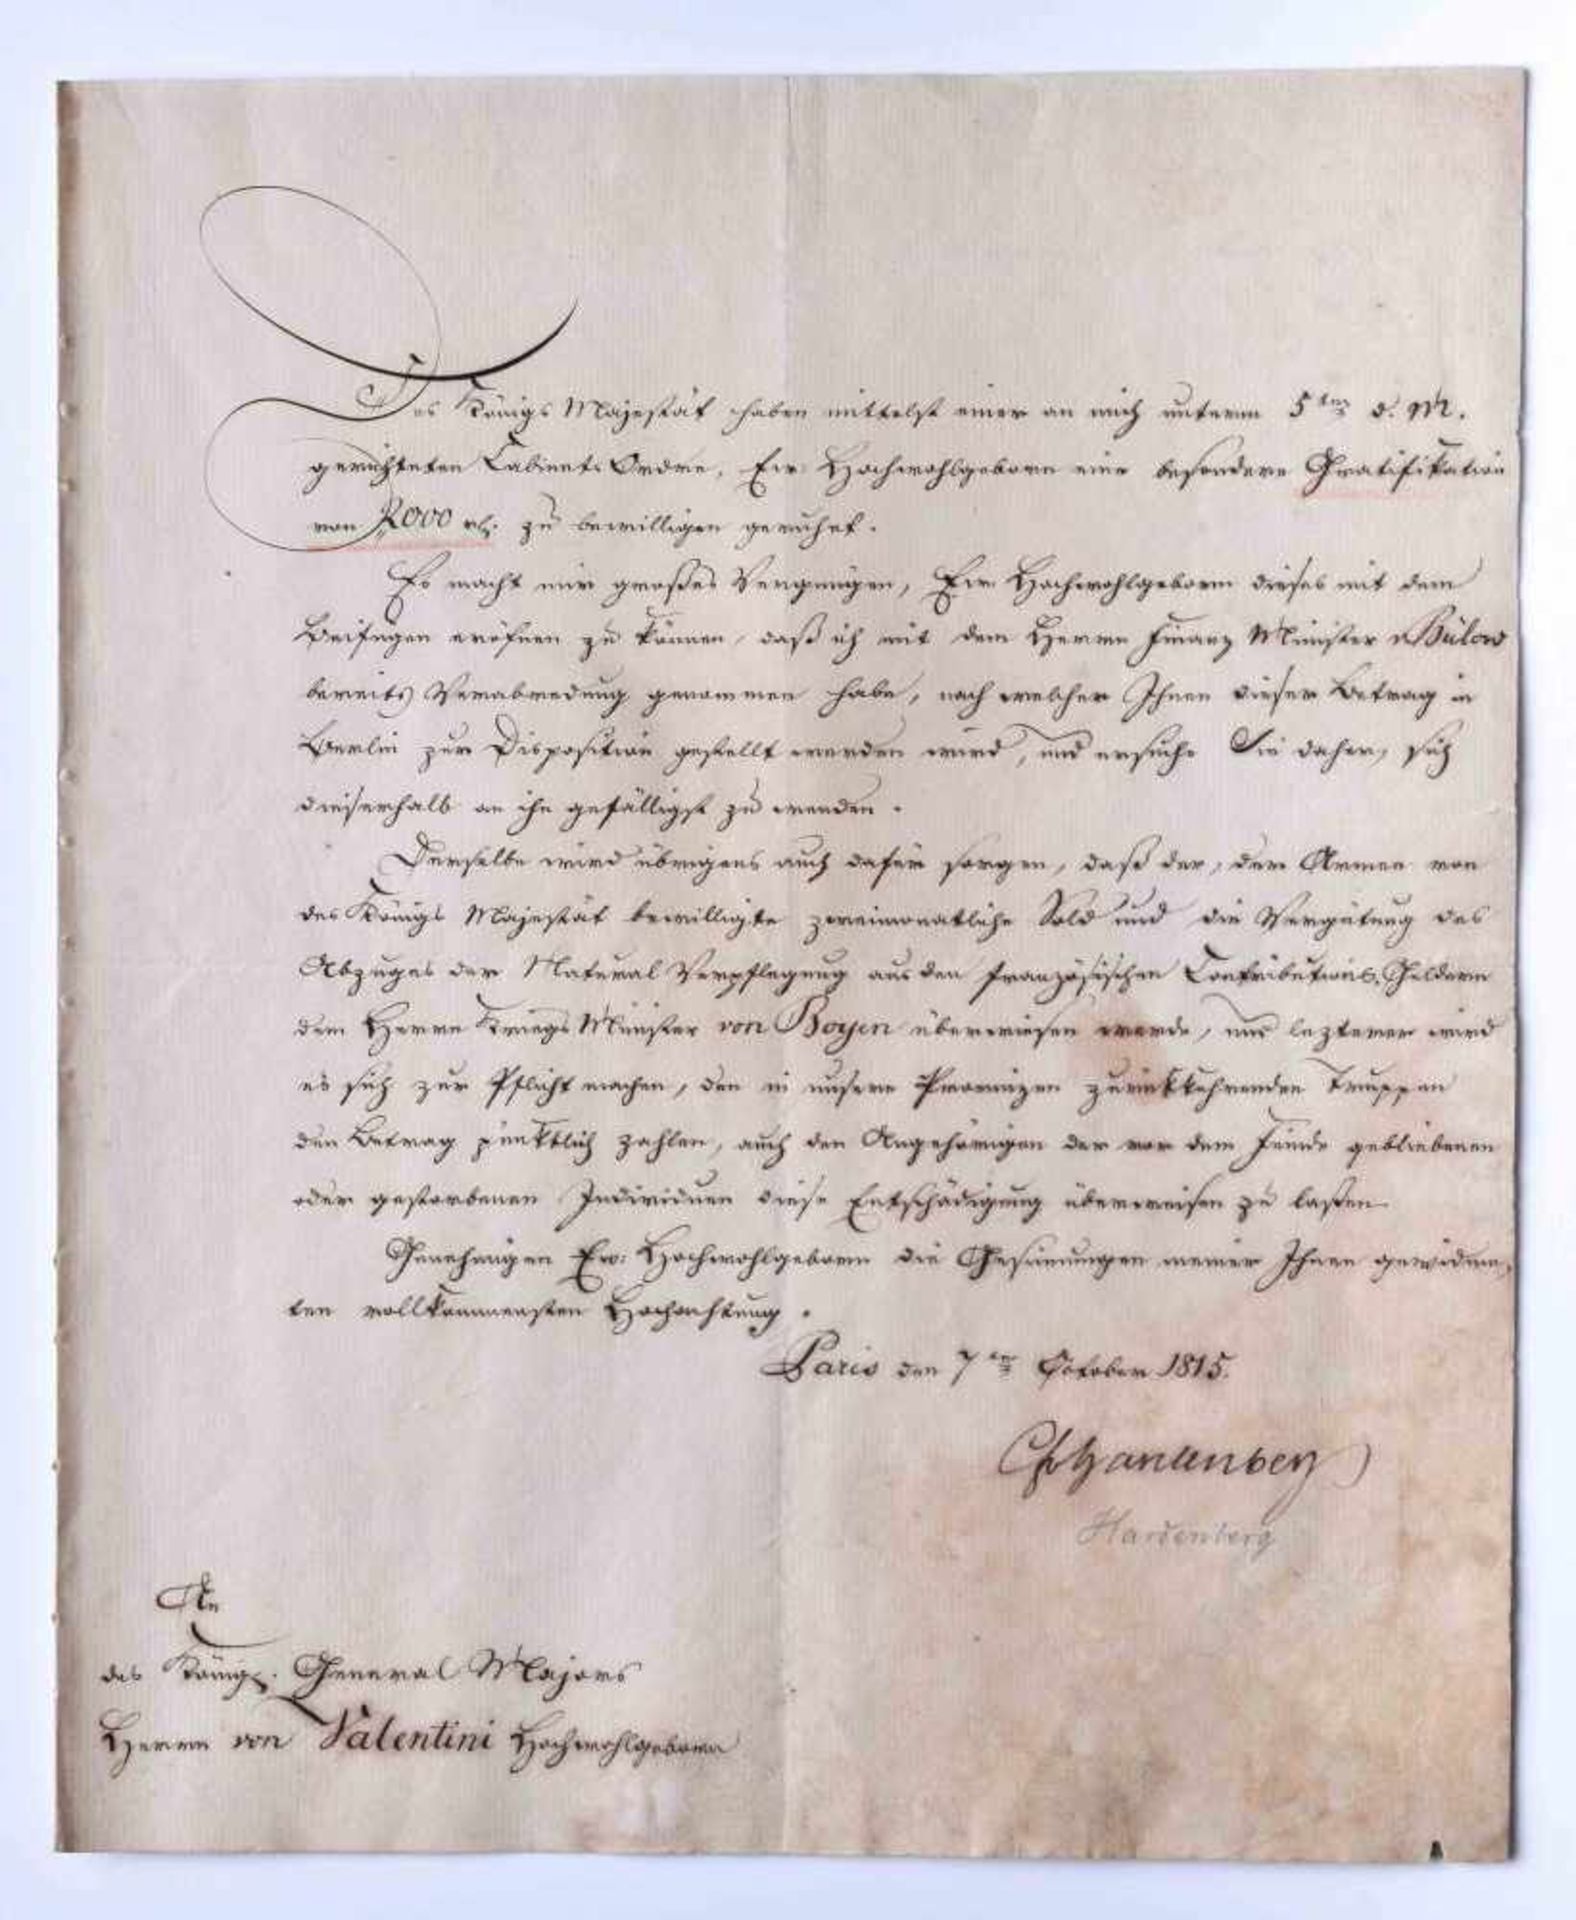 Des Königs Majestät haben mittelst einer an mich unterm 5ten d. M.
gerichteten Cabinets Ordre, Ew. Hochwohlgeboren eine besondere Gratifikation
von 2000 rh. zu bewilligen geruhet.
Es macht mir großes Vergnügen, Ew. Hochwohlgeboren dieses mit dem
Beifügen eröfnen zu können, daß ich mit dem Herrn Finanz Minister v Bülow
bereits Verabredung genommen habe, nach welcher Ihnen dieser Betrag in
Berlin zur Disposition gestellt werden wird, und ersuche Sie daher, sich
dieserhalb an ihn gefälligst zu wenden.
Derselbe wird übrigens auch dafür sorgen, daß der, der Armee von
des Königs Majestät bewilligte zweimonatliche Sold und die Vergütung des
Abzuges der Natural Verpflegung aus den französischen Contributions, Geldern
dem Herrn Kriegs Minister von Boyen überwiesen werde, und lezterer wird
es sich zur Pflicht machen, den in unsere Provinzen zurückkehrenden Truppen
den Betrag pünktlich zahlen, auch den Angehörigen der vor dem Feinde gebliebenen
oder gestorbenen Individuen diese Entschädigung überweisen zu laßen.
Genehmigen Ew: Hochwohlgeboren die Gesinnungen meiner Ihnen gewidme,
ten vollkommensten Hochachtung.
Paris den 7ten October 1815.
CFvHardenberg
Hardenberg
An
des Königl. General Majors
Herrn von Valentini Hochwohlgeboren